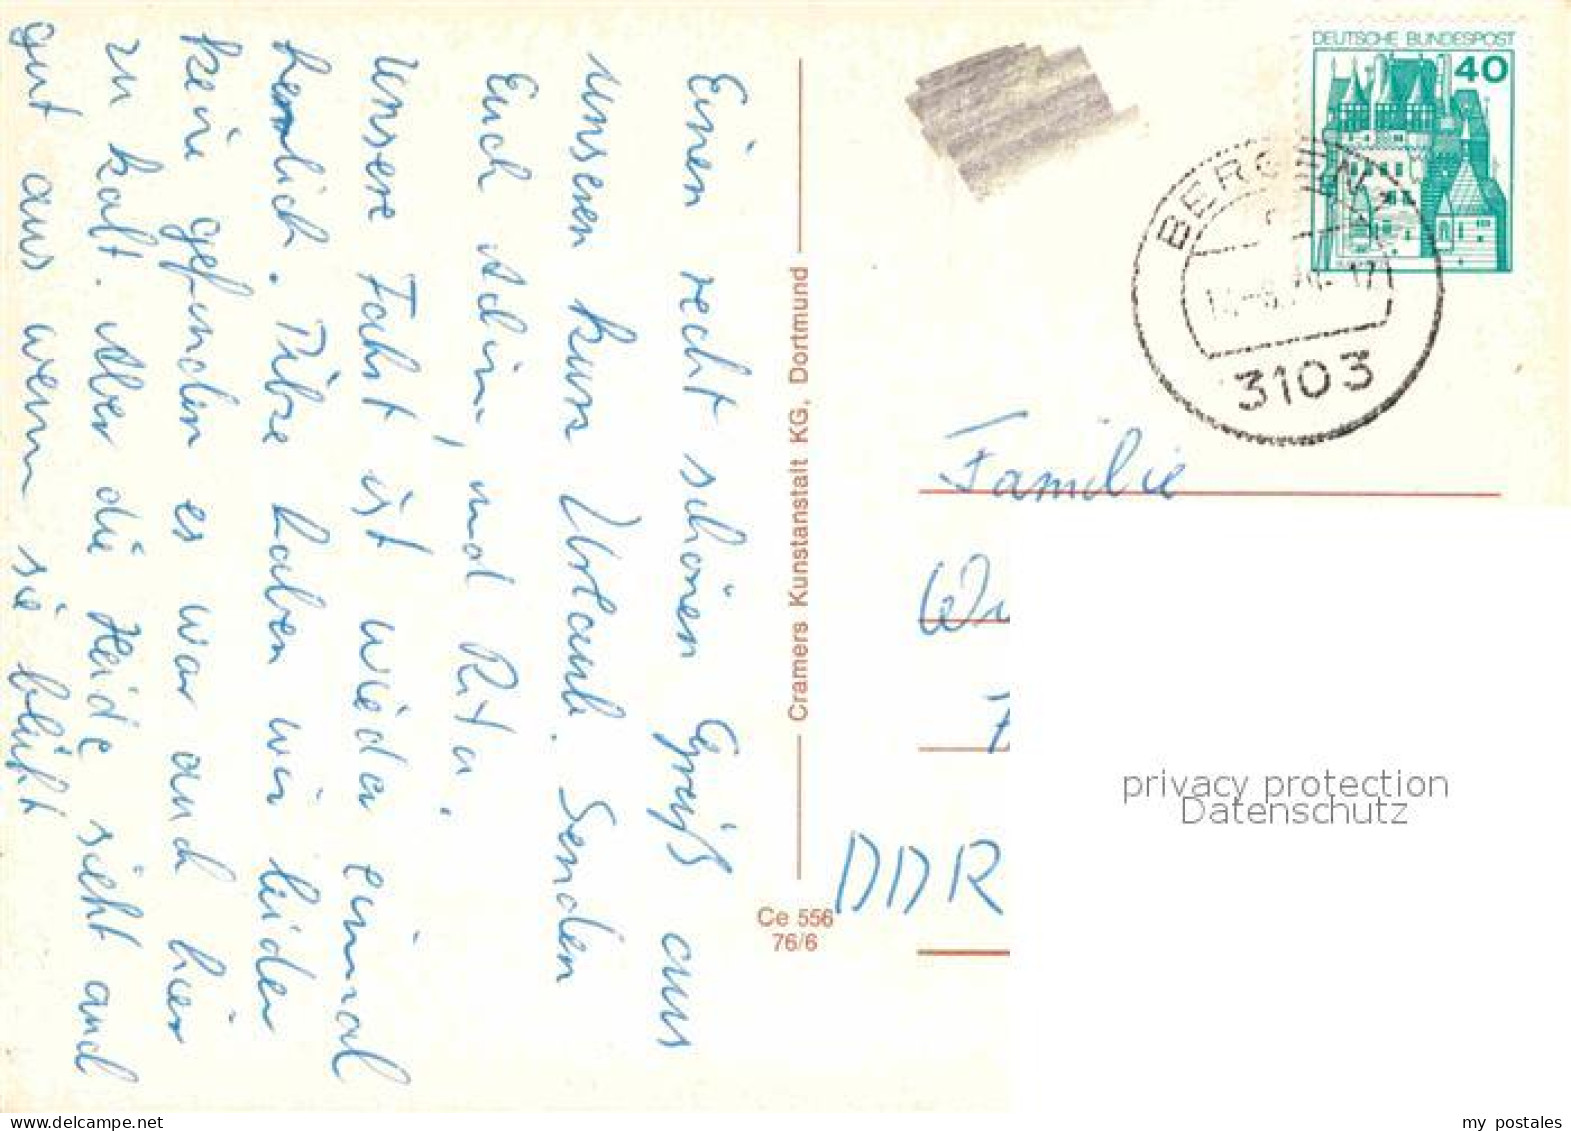 Einen recht schönen Gruß aus
unseren kurz Urlaub. Senden
Euch Achim, und Rita.
Unsere Fahrt ist wieder einmal
herrlich. Pilze haben wir leider
keine gefunden es war auch hier
zu kalt. Aber die Heide sieht auch
gut aus wenn sie blüht
Cramers Kunstanstalt KG, Dortmund
Ce 556
76/6
DEUTSCHE BUNDESPOST
40
BERGEN
3103
Familie
DDR
privacy protection
Datenschutz
my postales
www.delcampe.net